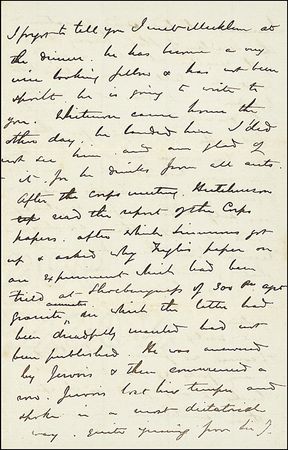 I forgot to tell you I met Micklem at
the dinner. he has become a very
nice looking fellow & has not been
spoilt he is going to write to
you. Whitmore came home the
other day. he landed here I did
not see him and am glad of
it for he drinks from all accts.
After the Corps meeting, Hutchinson
read the report of the Corps
papers. after which Simmons got
up & asked why paper on
an experiment which had been
tried at Shoeburyness of 300 agst
granite, in which the latter had
been dreadfully mauled had not
been published. He was answered
by Jervois & then commenced a
row. Jervois lost his temper and
spoke in a most dictatorial
way. quite from Sir J.